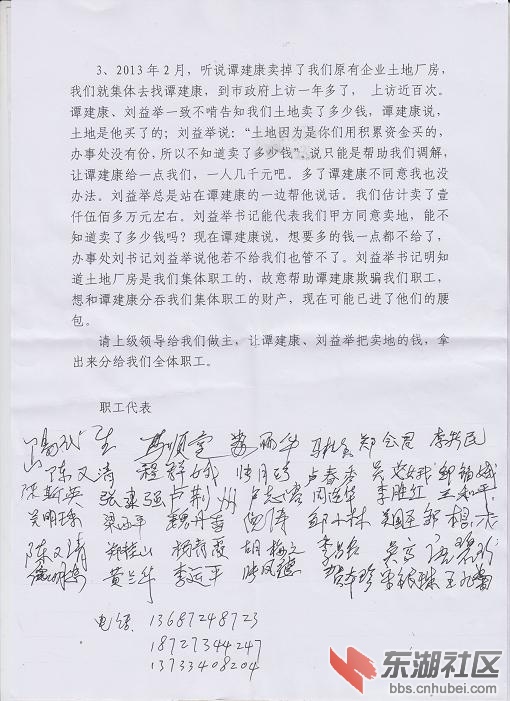 3、2013年2月，听说谭建康卖掉了我们原有企业土地厂房，
我们就集体去找谭建康，到市政府上访一年多了， 上访近百次。
谭建康、刘益举一致不啃告知我们土地卖了多少钱，谭建康说，
土地是他买了的；刘益举说：“土地因为是你们用积累资金买的，
办事处没有份，所以不知道卖了多少钱”，说只能是帮助我们调解，
让谭建康给一点我们，一人几千元吧。多了谭建康不同意我也没
办法。刘益举总是站在谭建康的一边帮他说话。我们估计卖了壹
仟伍佰多万元左右。刘益举书记能代表我们甲方同意卖地，能不
知道卖了多少钱吗？现在谭建康说，想要多的钱一点都不给了，
办事处刘书记刘益举说他若不给我们也管不了。刘益举书记明知
道土地厂房是我们集体职工的，故意帮助谭建康欺骗我们职工，
想和谭建康分吞我们集体职工的财产，现在可能已进了他们的腰
包。
请上级领导给我们做主，让谭建康、刘益举把卖地的钱，拿
出来分给我们全体职工。
职工代表
郑会周 李新民
陈又清 程锌娥 卢春香 吴文娥
张业强 卢荆州 周连华 李胜红 王和平
吴明珠 梁永平 魏丹雪 倪涛 邹小林 吴国平
陈又清 郑桂山 杨荷霞 胡梅文 吴京
黄兰华 李延平 陈凤德 贺本珍 宋银珠 王九菊
电话 13687248723
18727344247
13733408204
东湖社区
bbs.cnhubei.com